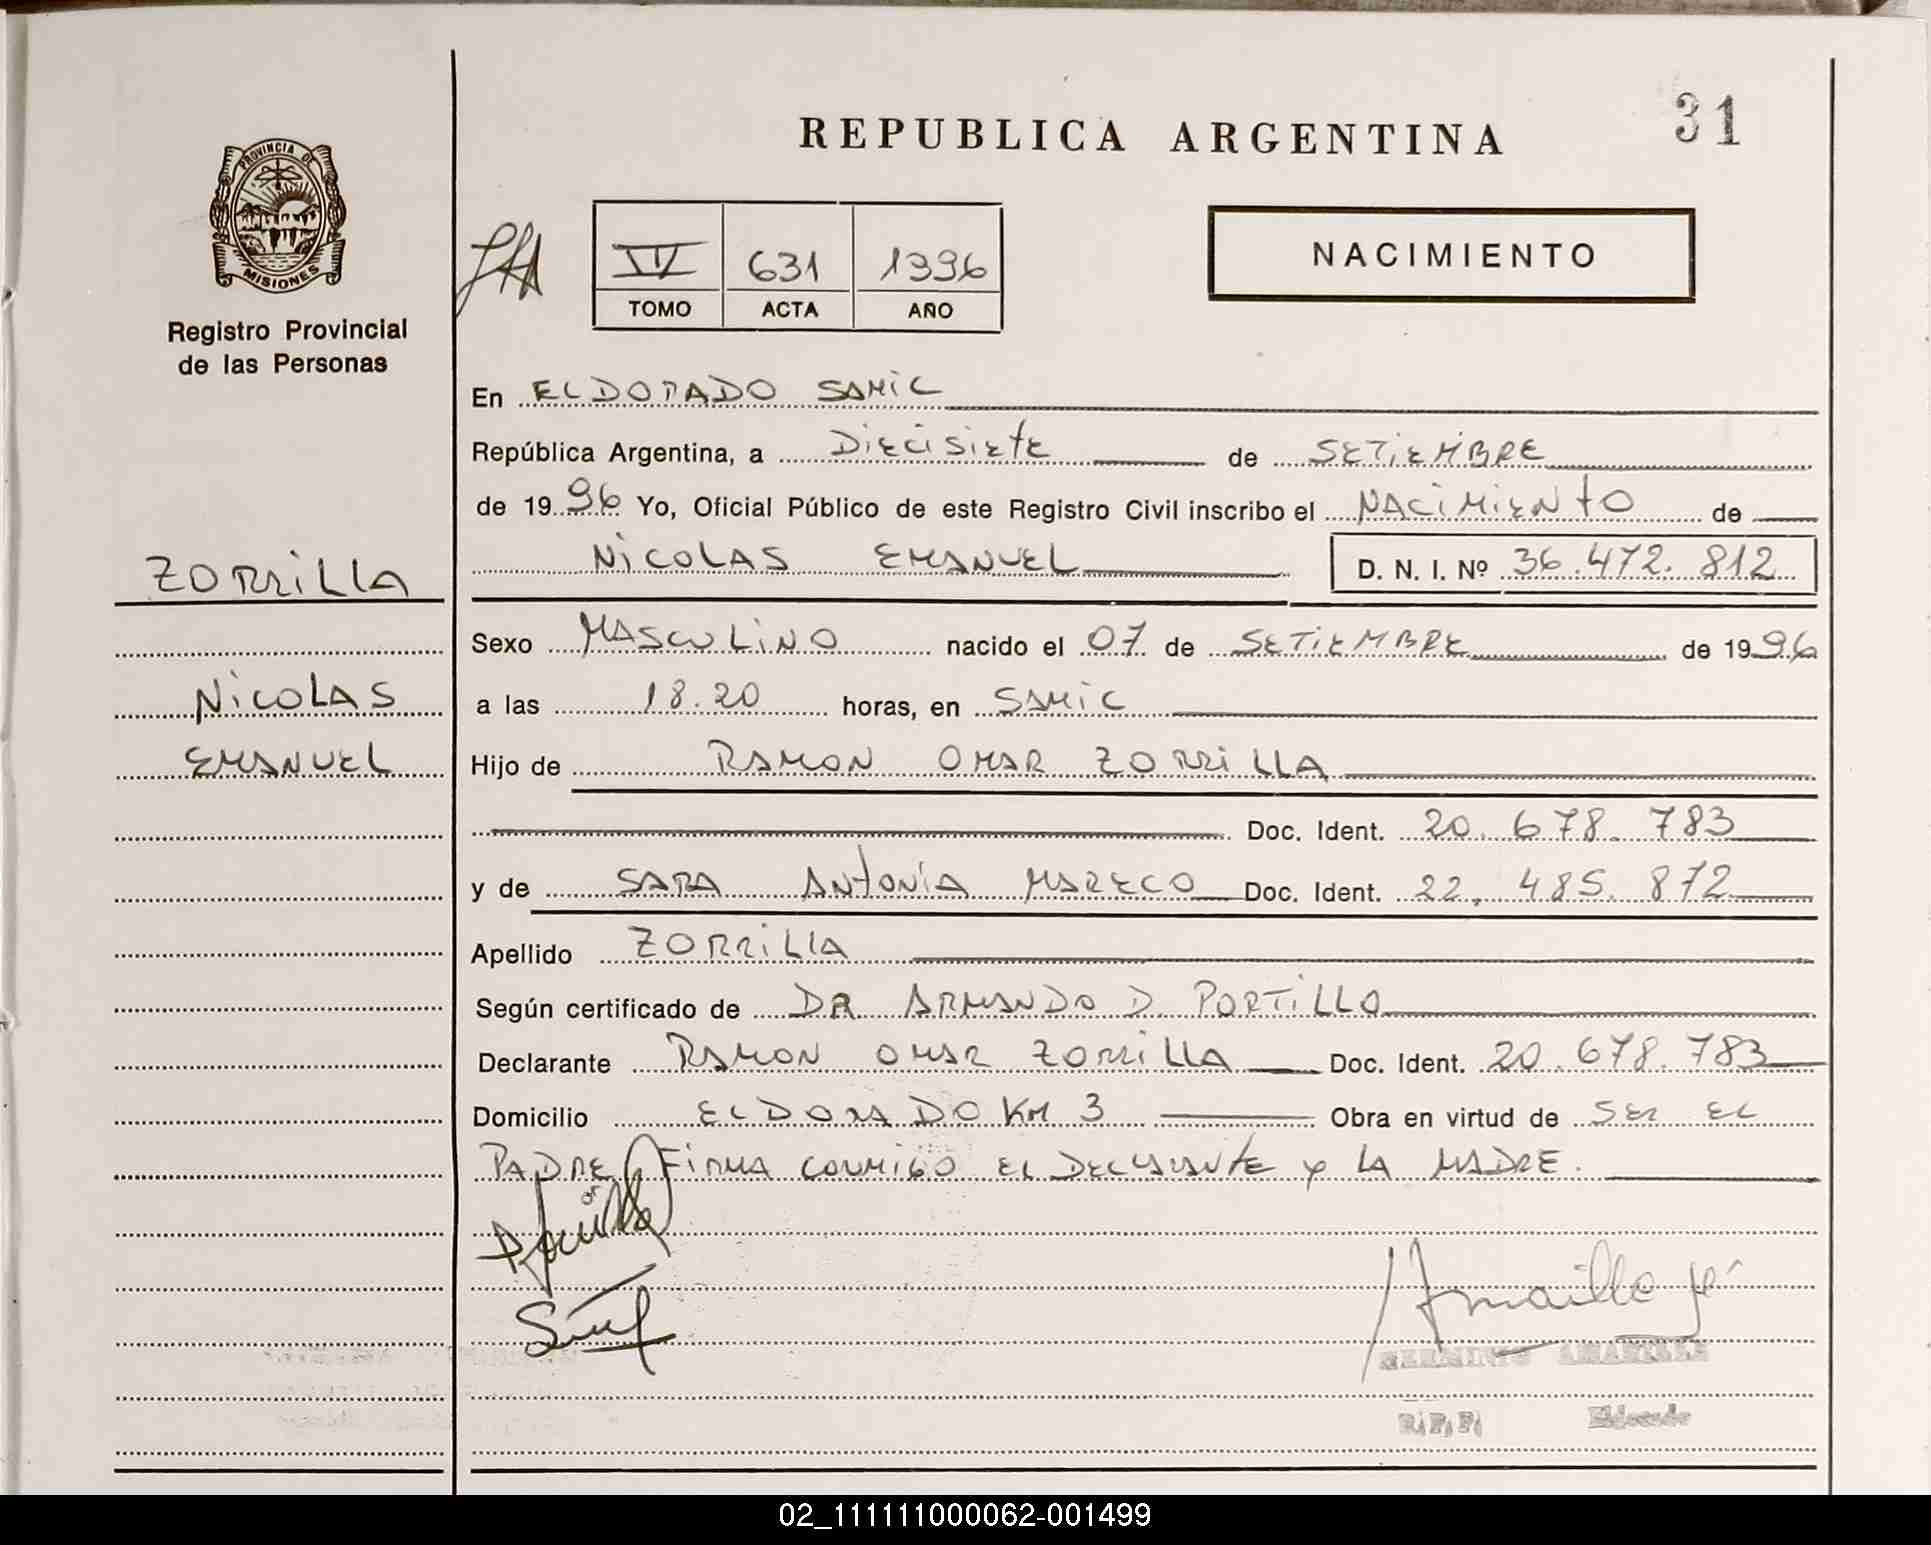 31
REPUBLICA ARGENTINA
PROVINCIA DE
MISIONES
Registro Provincial
de las Personas
IV 631 1996
TOMO ACTA AÑO
NACIMIENTO
ZORRILLA
NICOLAS
EMANUEL
En ELDORADO SAMIC
República Argentina, a DIECISIETE de SETIEMBRE
de 1996 Yo, Oficial Público de este Registro Civil inscribo el NACIMIENTO de
NICOLAS EMANUEL D. N. I. Nº 36.472.812
Sexo MASCULINO nacido el 07 de SETIEMBRE de 1996
a las 18.20 horas, en SAMIC
Hijo de RAMON OMAR ZORRILLA
Doc. Ident. 20.678.783
y de SARA ANTONIA MARECO Doc. Ident. 22.485.872
Apellido ZORRILLA
Según certificado de DR ARMANDO D. PORTILLO
Declarante RAMON OMAR ZORRILLA Doc. Ident. 20.678.783
Domicilio ELDORADO KM 3 Obra en virtud de SER EL
PADRE FIRMA CONMIGO EL DECLARANTE Y LA MADRE.
R.P.P. Eldorado
02_111111000062-001499